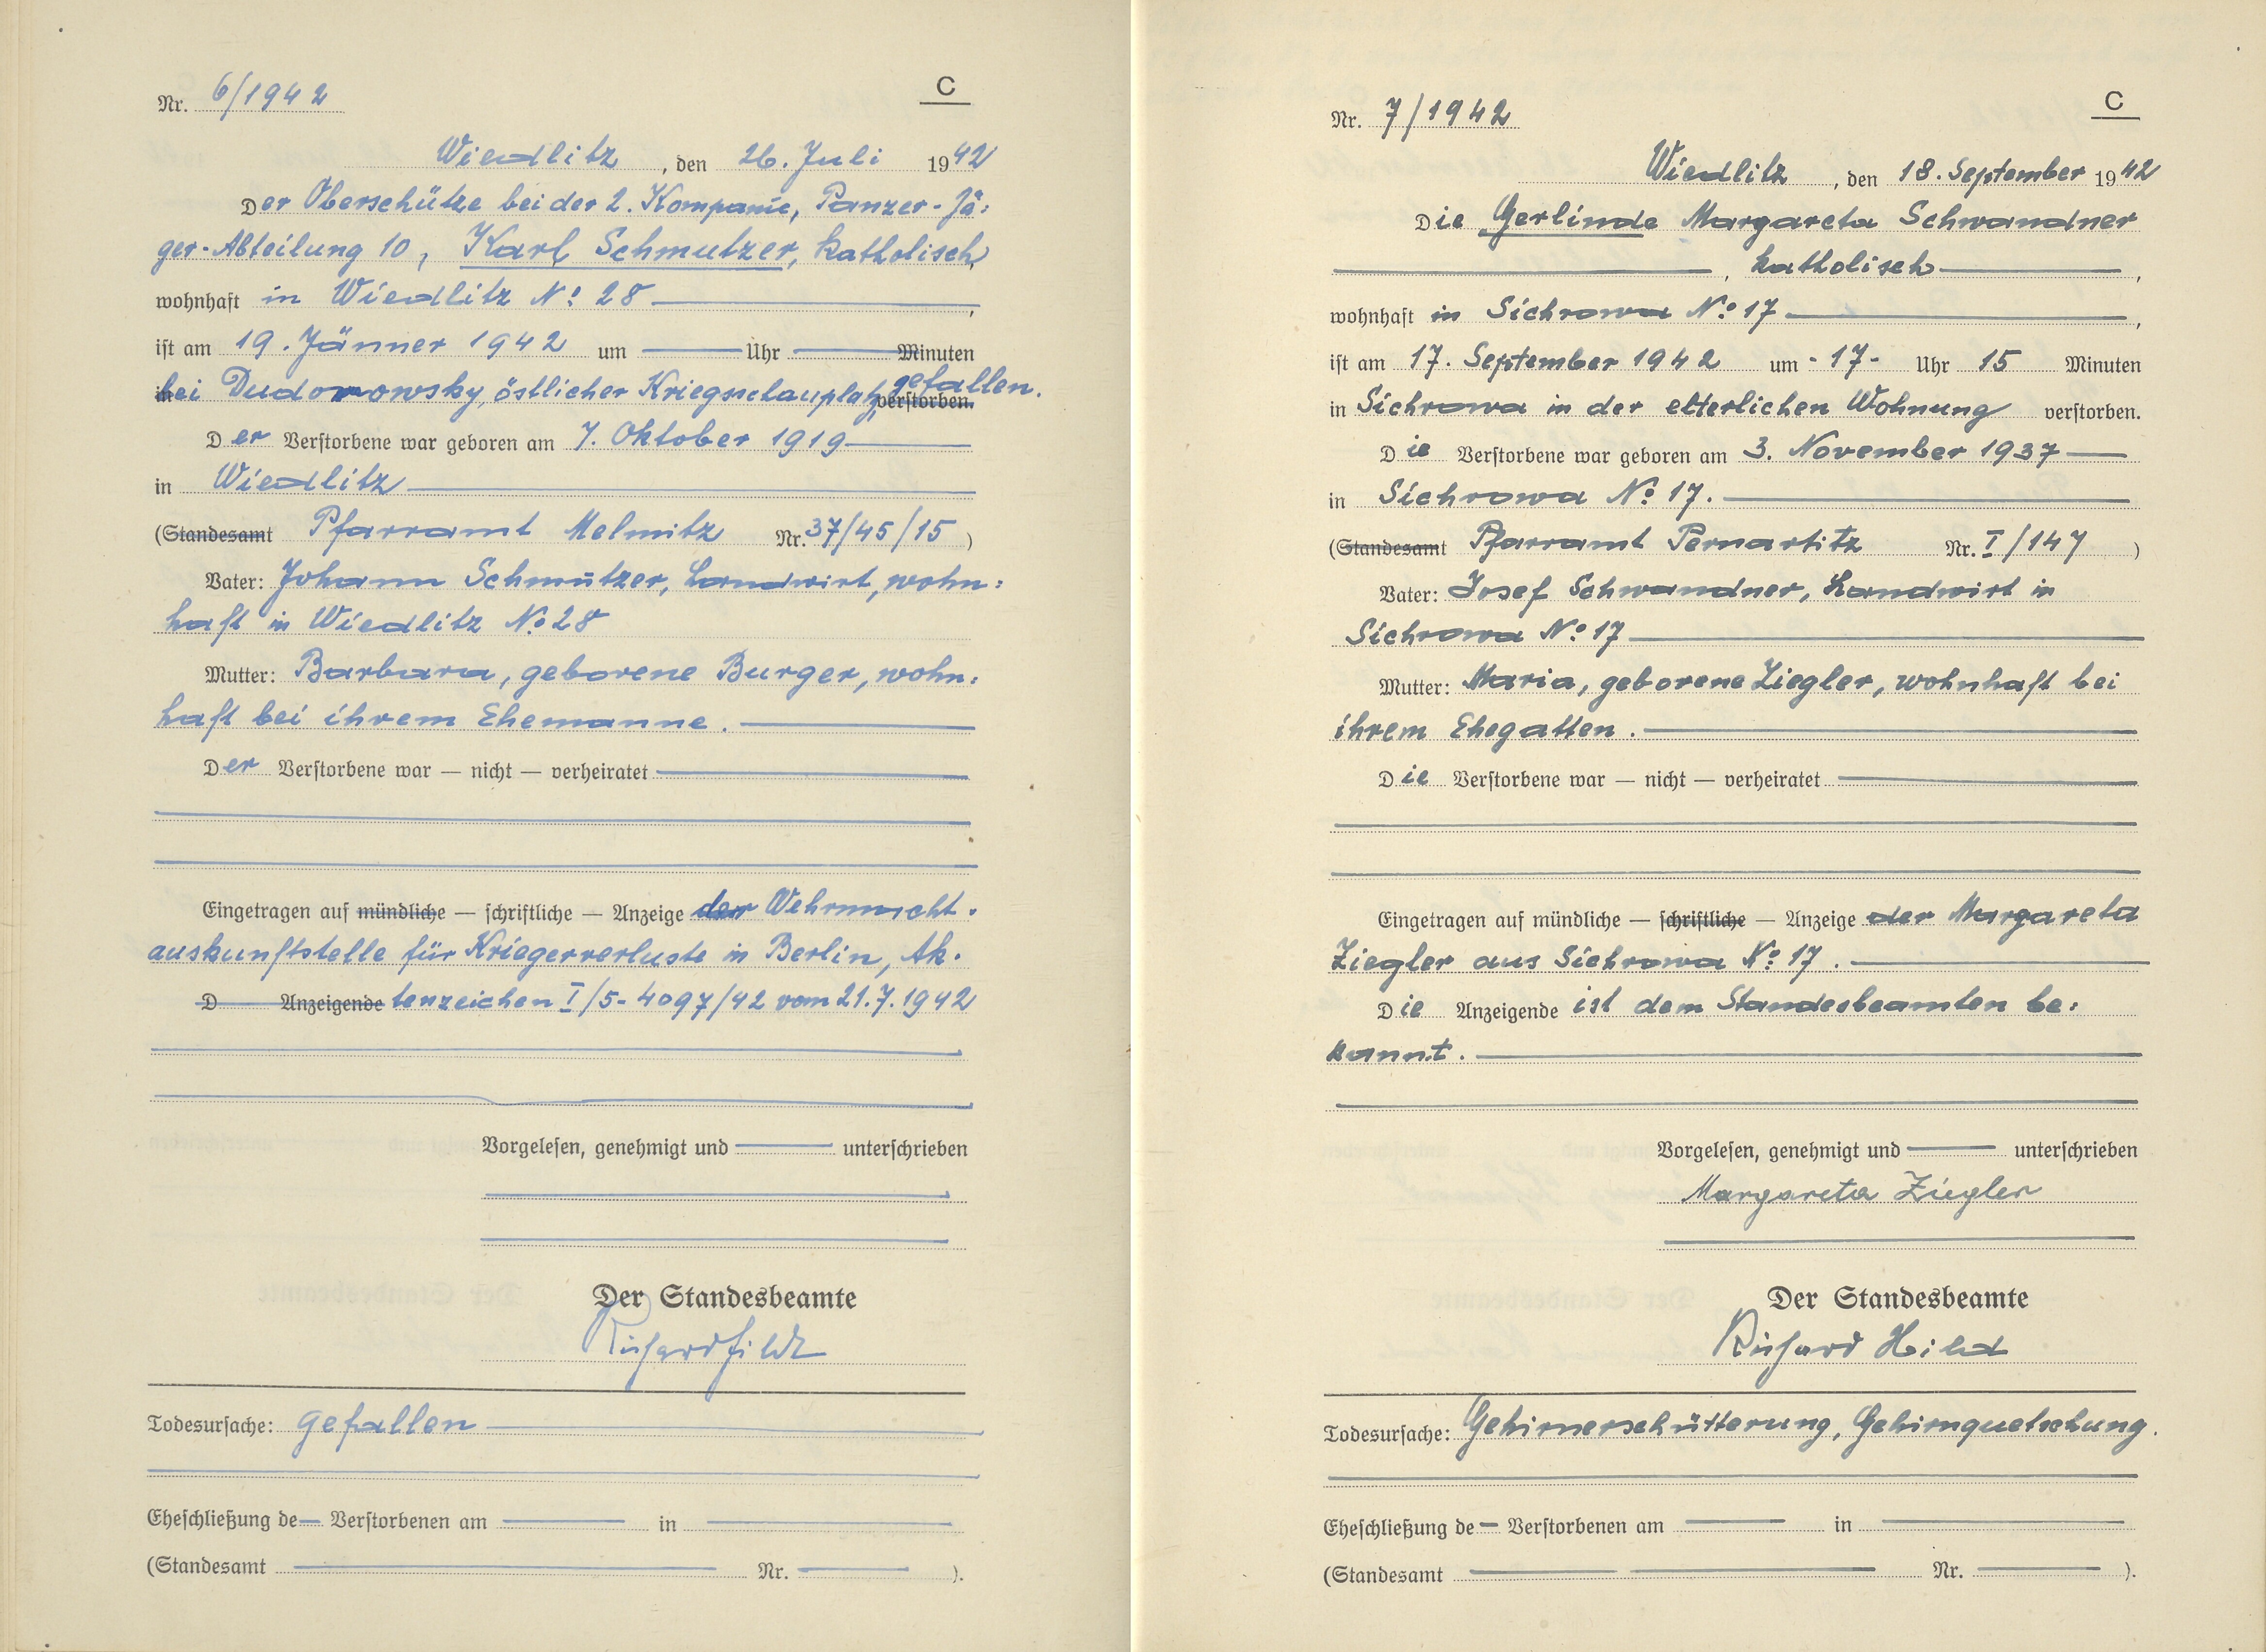 Nr. 6/1942
C
Wiedlitz, den 26. Juli 1942
Der Oberschütze bei der 2. Kompanie, Panzer-Jä:
ger-Abteilung 10, Karl Schmutzer, katholisch,
wohnhaft in Wiedlitz No. 28
ist am 19. Jänner 1942 um Uhr Minuten
bei Dudorowsky, östlicher Kriegsschauplatz, gefallen. verstorben.
Der Verstorbene war geboren am 7. Oktober 1919
in Wiedlitz
(Standesamt Pfarramt Melmitz Nr. 37/45/15)
Vater: Johann Schmutzer, Landwirt, wohn:
haft in Wiedlitz No 28
Mutter: Barbara, geborene Burger, wohn:
haft bei ihrem Ehemanne.
Der Verstorbene war — nicht — verheiratet
Eingetragen auf mündliche — schriftliche — Anzeige der Wehrmacht-
auskunftstelle für Kriegerverluste in Berlin, Ak-
D Anzeigende tenzeichen I/5-4097/42 vom 21.7.1942
Vorgelesen, genehmigt und unterschrieben
Der Standesbeamte
Richard Hild
Todesursache: gefallen
Eheschließung de Verstorbenen am in
(Standesamt Nr. ).
Nr. 7/1942
C
Wiedlitz, den 18. September 1942
Die Gerlinde Margareta Schwandner
, katholisch,
wohnhaft in Sichrowa No. 17,
ist am 17. September 1942 um -17- Uhr 15 Minuten
in Sichrowa in der elterlichen Wohnung verstorben.
Die Verstorbene war geboren am 3. November 1937
in Sichrowa No. 17.
(Standesamt Pfarramt Pernartitz Nr. I/147)
Vater: Josef Schwandner, Landwirt in
Sichrowa No. 17
Mutter: Maria, geborene Ziegler, wohnhaft bei
ihrem Ehegatten.
Die Verstorbene war — nicht — verheiratet
Eingetragen auf mündliche — schriftliche — Anzeige der Margareta
Ziegler aus Sichrowa No. 17.
Die Anzeigende ist dem Standesbeamten be:
kannt.
Vorgelesen, genehmigt und unterschrieben
Margareta Ziegler
Der Standesbeamte
Richard Hild
Todesursache: Gehirnerschütterung, Gehirnquetschung.
Eheschließung de Verstorbenen am in
(Standesamt Nr. ).